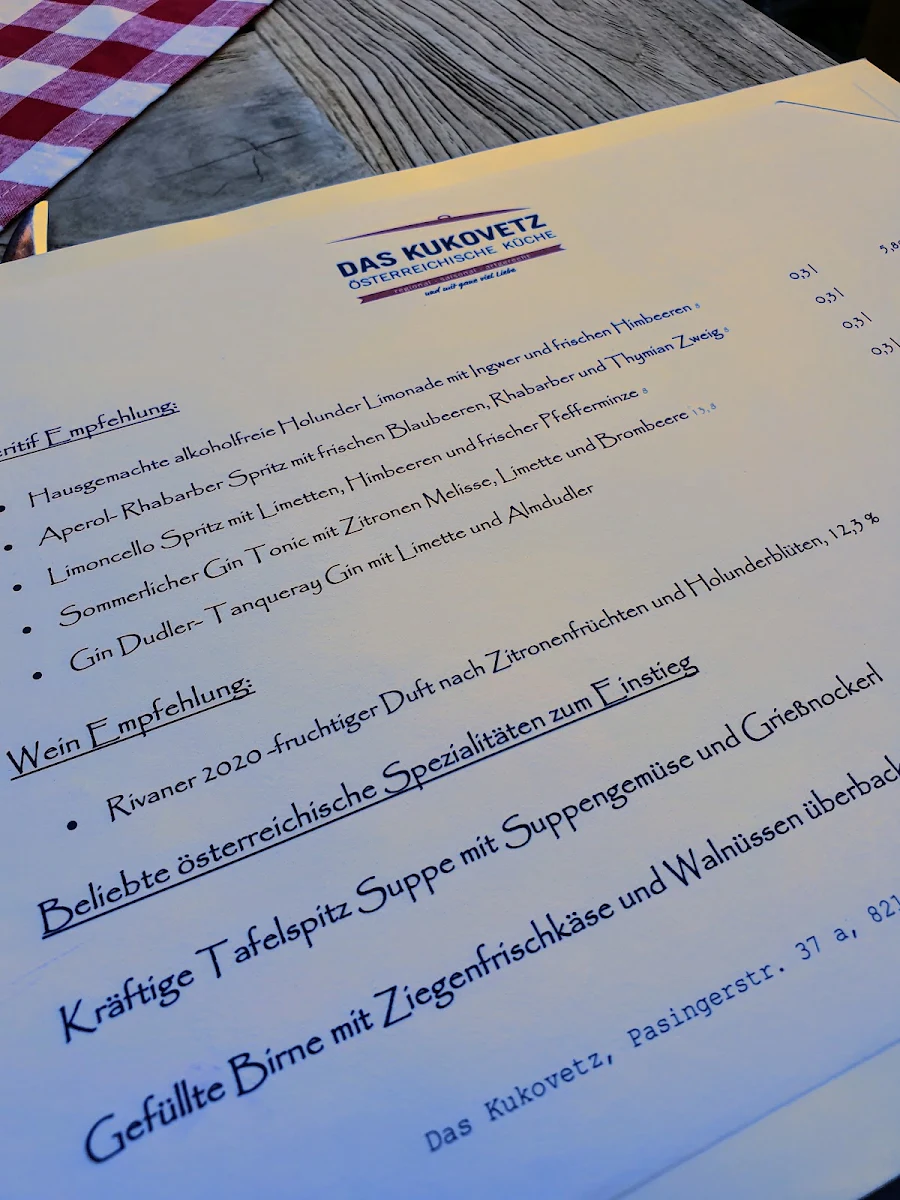 DAS KUKOVETZ
ÖSTERREICHISCHE KÜCHE
regional · saisonal · artgerecht
und mit ganz viel Liebe
Empfehlung:
• Hausgemachte alkoholfreie Holunder Limonade mit Ingwer und frischen Himbeeren 8 0,3 l
• Aperol- Rhabarber Spritz mit frischen Blaubeeren, Rhabarber und Thymian Zweig 8 0,3 l
• Limoncello Spritz mit Limetten, Himbeeren und frischer Pfefferminze 8 0,3 l
• Sommerlicher Gin Tonic mit Zitronen Melisse, Limette und Brombeere 13,8 0,3 l
• Gin Dudler- Tanqueray Gin mit Limette und Almdudler
Wein Empfehlung:
• Rivaner 2020 -fruchtiger Duft nach Zitronenfrüchten und Holunderblüten, 12,3 %
Beliebte österreichische Spezialitäten zum Einstieg
Kräftige Tafelspitz Suppe mit Suppengemüse und Grießnockerl
Gefüllte Birne mit Ziegenfrischkäse und Walnüssen überback
Das Kukovetz, Pasingerstr. 37 a, 821